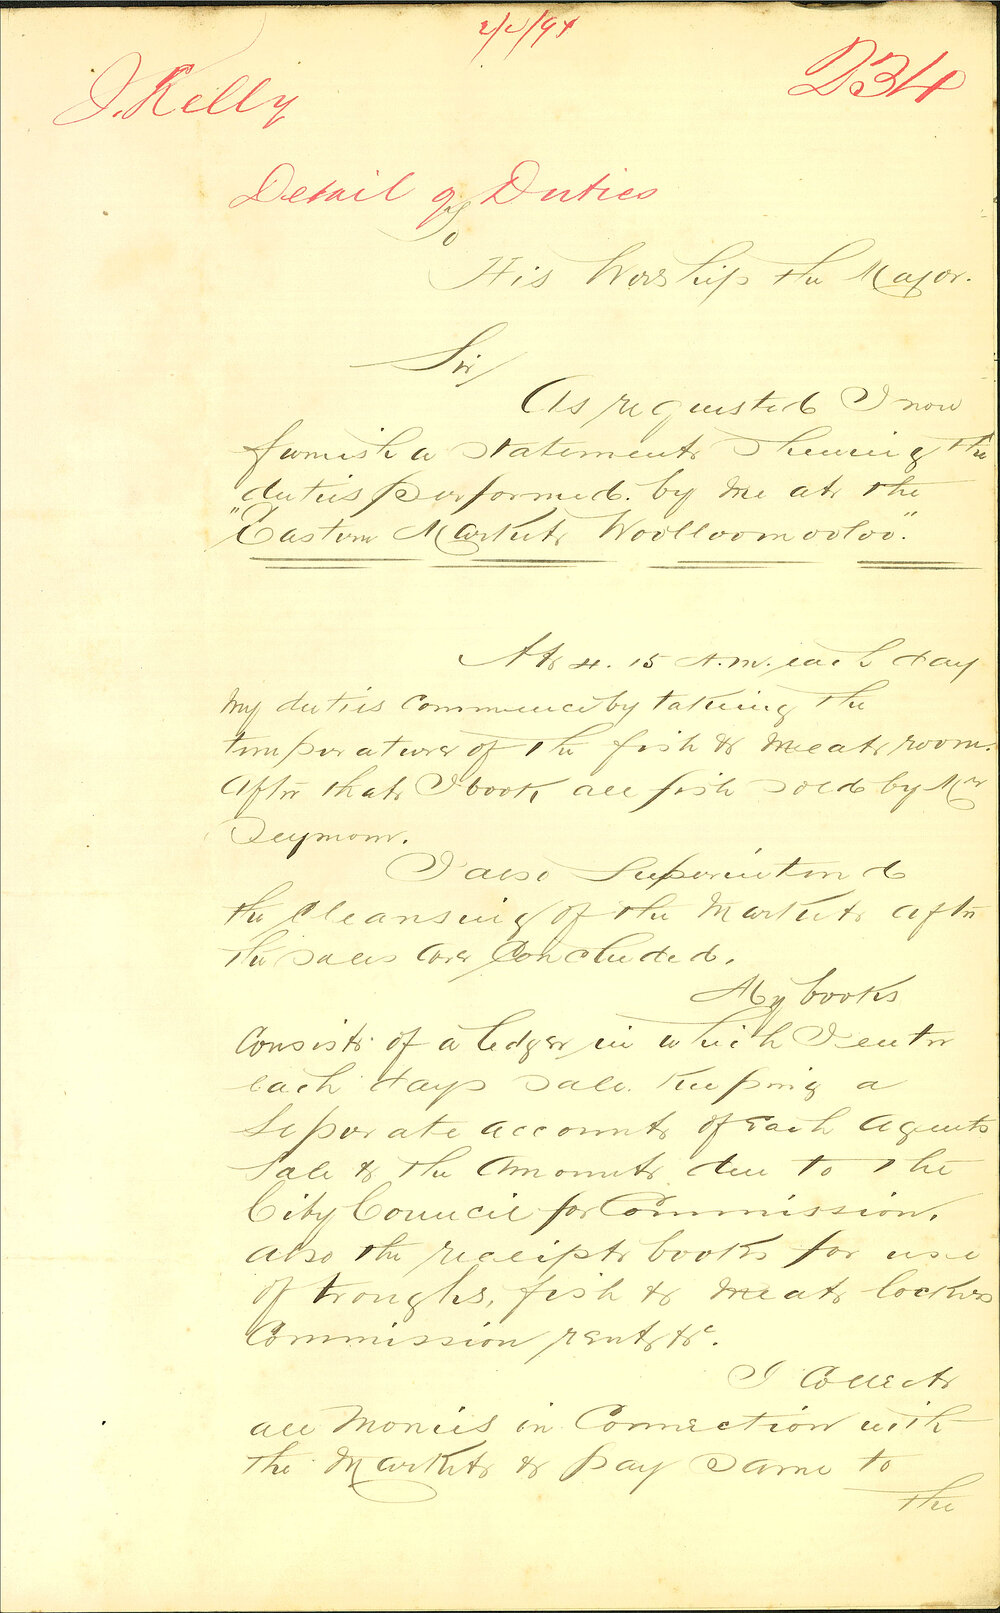 2/5/94
J. Kelly
D34
Detail of Duties
To
His Worship the Mayor.
Sir/
As requested I now
furnish a statement shewing the
duties performed by me at the
"Eastern Market Woolloomooloo."
At 4.15 A.m. each day
my duties commence by taking the
temperature of the fish & meat room.
After that I book all fish sold by Mr
Seymour.
I also Superintend
the Cleansing of the Market after
the sales are Concluded.
My books
Consist of a ledger in which I enter
each days sale keeping a
Separate account of Each Agents
Sale & the Amount due to the
City Council for Commission,
also the receipt books for use
of troughs, fish & meat lockers
Commission rent &c.
I Collect
all Monies in Connection with
the Market & pay same to
the